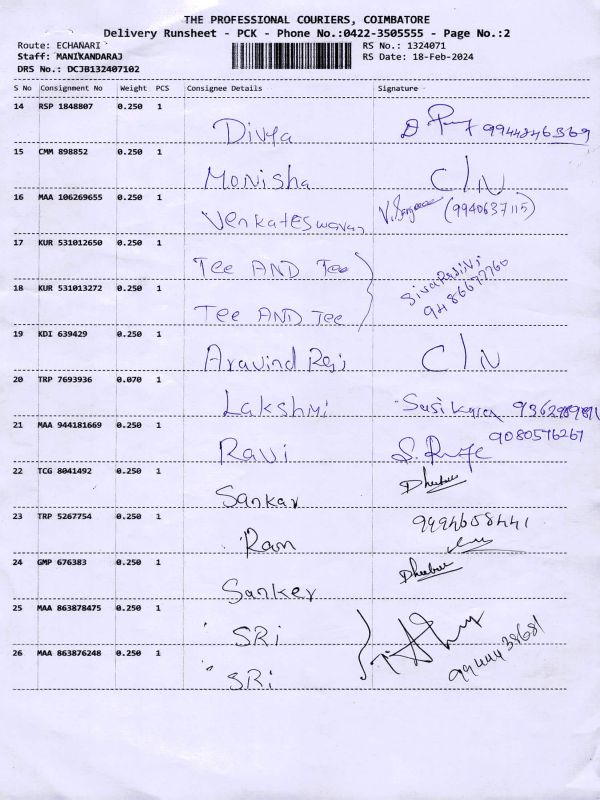 THE PROFESSIONAL COURIERS, COIMBATORE
Delivery Runsheet - PCK - Phone No.:0422-3505555 - Page No.:2
Route: ECHANARI RS No.: 1324071
Staff: MANIKANDARAJ RS Date: 18-Feb-2024
DRS No.: DCJB132407102
S No Consignment No Weight PCS Consignee Details Signature
14 RSP 1848807 0.250 1 Divya 9944846369
15 CMM 898852 0.250 1 Monisha C/N
16 MAA 106269655 0.250 1 Venkateswaran (9940637115)
17 KUR 531012650 0.250 1 Tee AND Tee
18 KUR 531013272 0.250 1 Tee AND Tee
19 KDI 639429 0.250 1 Aravind Raj C/N
20 TRP 7693936 0.070 1 Lakshmi
21 MAA 944181669 0.250 1 Ravi 9080576267
22 TCG 8041492 0.250 1 Sankar
23 TRP 5267754 0.250 1 Ram 9994658441
24 GMP 676383 0.250 1 Sanker
25 MAA 863878475 0.250 1 SRi
26 MAA 863876248 0.250 1 SRi 9944438681